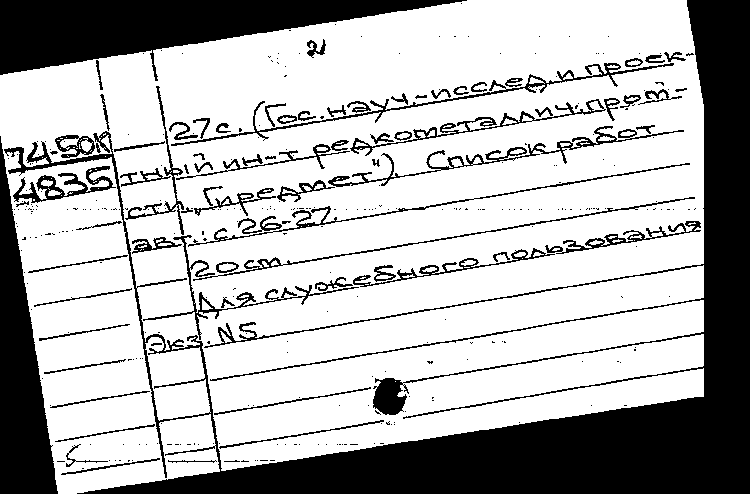 2
74-50К
4835
27 с. (Гос. науч.-исслед. и проек-
тный ин-т редкометаллич. пром-
сти „Гиредмет"). Список работ
авт.: с. 26-27.
20 cm.
Для служебного пользования
Экз. N5
5